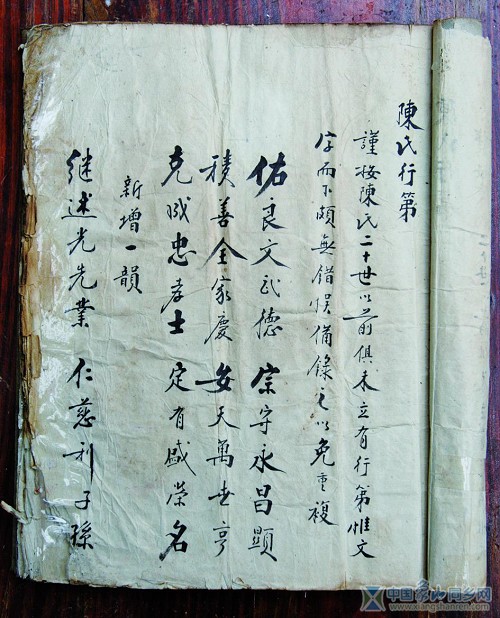 陳氏行第
謹按陳氏二十世以前俱未立有行第惟文
字而下頗無錯悮備錄之以免重複
佑良文武德 宗守永昌顯
積善全家慶 安天萬世亨
克成忠孝士 定有盛榮名
新增一韻
継述光先業 仁慈利子孫
中国象山同乡网
www.xiangshanren.com